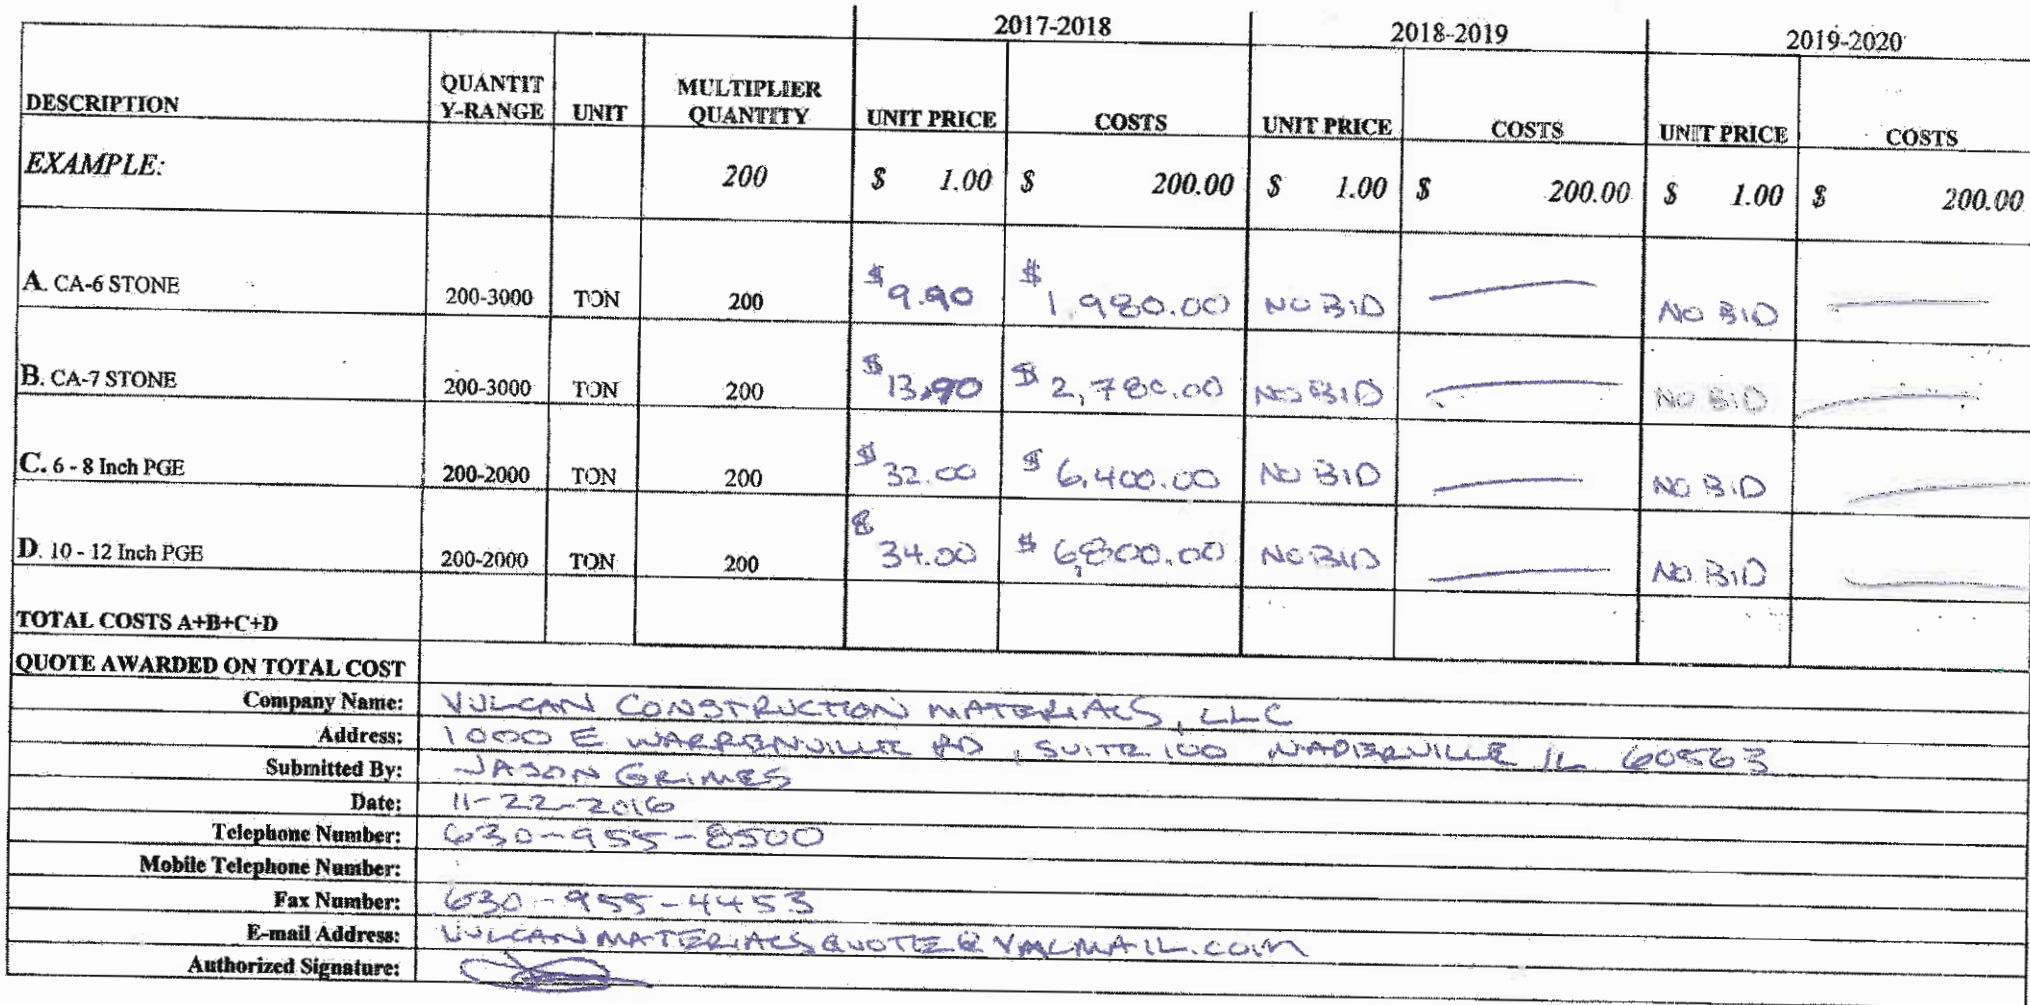 2017-2018 2018-2019 2019-2020
DESCRIPTION QUANTIT Y-RANGE UNIT MULTIPLIER QUANTITY UNIT PRICE COSTS UNIT PRICE COSTS UNIT PRICE COSTS
EXAMPLE: 200 $ 1.00 $ 200.00 $ 1.00 $ 200.00 $ 1.00 $ 200.00
A. CA-6 STONE 200-3000 TON 200 $9.90 $1,980.00 NO BID NO BID
B. CA-7 STONE 200-3000 TON 200 $13.90 $2,780.00 NO BID NO BID
C. 6 - 8 Inch PGE 200-2000 TON 200 $32.00 $6,400.00 NO BID NO BID
D. 10 - 12 Inch PGE 200-2000 TON 200 $34.00 $6,800.00 NO BID NO BID
TOTAL COSTS A+B+C+D
QUOTE AWARDED ON TOTAL COST
Company Name: VULCAN CONSTRUCTION MATERIALS, LLC
Address: 1000 E WARRENVILLE RD, SUITE 100 NAPERVILLE IL 60563
Submitted By: JASON GRIMES
Date: 11-22-2016
Telephone Number: 630-955-8500
Mobile Telephone Number:
Fax Number: 630-955-4453
E-mail Address: VULCANMATERIALSQUOTE@VMCMAIL.COM
Authorized Signature: